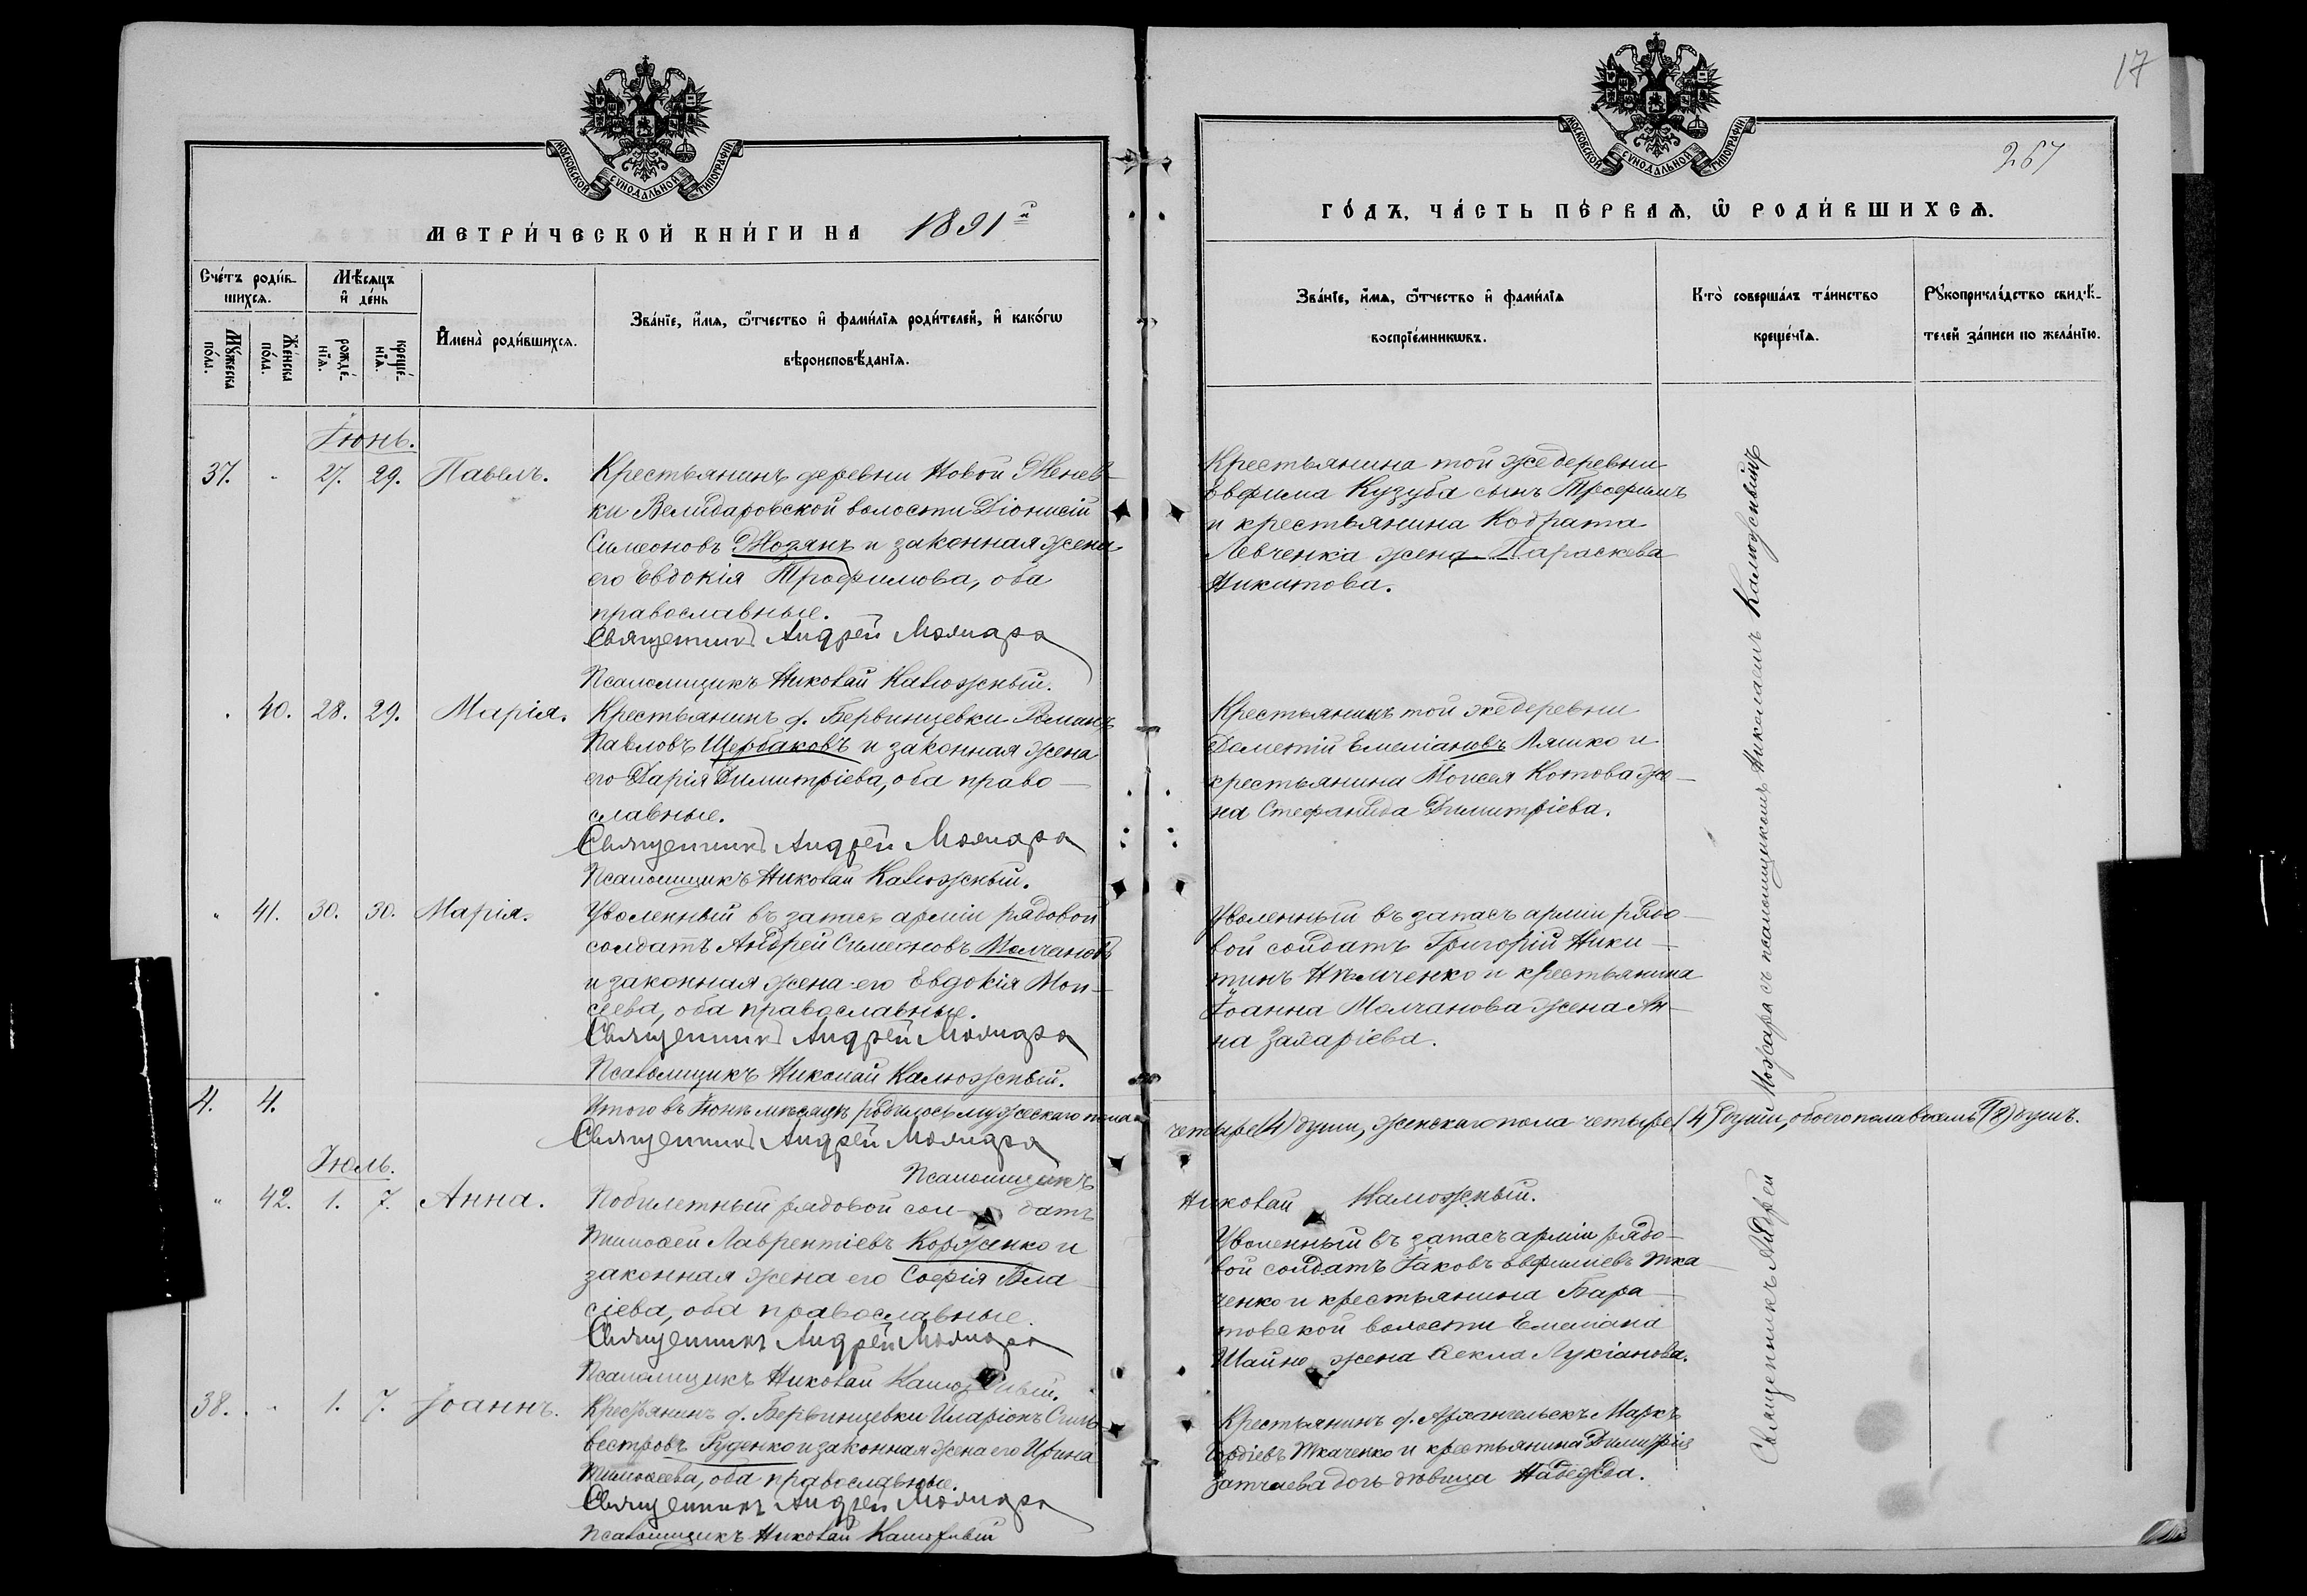 17
267
МОСКОВСКОЙ СѴНОДАЛЬНОЙ ТИПОГРАФІИ
МОСКОВСКОЙ СѴНОДАЛЬНОЙ ТИПОГРАФІИ
МЕТРИ́ЧЕСКОЙ КНИ́ГИ НА 1891й
ГО́ДЪ, ЧА́СТЬ ПЕ́РВАѦ, Ѽ РОДИ́ВШИХСѦ.
Сче́тъ роди́в-
шихсѧ.
Мѣ́сѧцъ
и҆ де́нь
Мꙋ́жеска
по́ла.
Же́нска
по́ла.
рожде́-
нїѧ.
креще́-
нїѧ.
И҆мена̀ роди́вшихсѧ.
Зва́нїе, и҆́мѧ, ѻ҆́тчество и҆ фами́лїѧ роди́телей, и҆ како́гѡ
вѣроисповѣ́данїѧ.
Зва́нїе, и҆́мѧ, ѻ҆́тчество и҆ фами́лїѧ
воспрїе́мникѡвъ.
Кто̀ соверша́лъ та́инство
креще́нїѧ.
Рꙋкоприкла́дство свидѣ́-
телей за́писи по жела́нїю.
Іюнь.
37. „ 27. 29. Павелъ. Крестьянинъ деревни Новой Женев-
ки Велидаровской волости Діонисій
Симеоновъ Жозянъ и законная жена
его Евдокія Трофимова, оба
православные.
Священникъ Андрей Можара
Псаломщикъ Николай Калюжный.
Крестьянина той же деревни
Евфима Кузуба сынъ Трофимъ
и крестьянина Кодрата
Левченка жена Параскева
Никитова.
„ 40. 28. 29. Марія. Крестьянинъ д. Бервинцевки Романъ
Павловъ Щербаковъ и законная жена
его Дарія Димитріева, оба право-
славные.
Священникъ Андрей Можара
Псаломщикъ Николай Калюжный.
Крестьянинъ той же деревни
Дометій Емеліановъ Ляшко и
крестьянина Моисея Котова же-
на Стефанида Димитріева.
„ 41. 30. 30. Марія. Уволенный въ запасъ арміи рядовой
солдатъ Андрей Симеоновъ Молчановъ
и законная жена его Евдокія Мои-
сеева, оба православные.
Священникъ Андрей Можара
Псаломщикъ Николай Калюжный.
Уволенный въ запасъ арміи рядо-
вой солдатъ Григорій Ники-
тинъ Нѣмченко и крестьянина
Іоанна Молчанова жена Ан-
на Захаріева.
4. 4. Итого въ Іюнѣ мѣсяцѣ родилось мужескаго пола
четыре (4) души, женскаго пола четыре (4) души, обоего пола восемь (8) душъ.
Священникъ Андрей Можара
Псаломщикъ
Николай Калюжный.
Іюль.
„ 42. 1. 7. Анна. Побилетный рядовой сол- датъ
Тимофей Лаврентіевъ Корженко и
законная жена его Софія Вла-
сіева, оба православные.
Священникъ Андрей Можара
Псаломщикъ Николай Калюжный.
Уволенный въ запасъ арміи рядо-
вой солдатъ Іаковъ Евфиміевъ Тка-
ченко и крестьянина Бара-
товской волости Емеліана
Шайно жена Ѳекла Лукіанова.
38. „ 1. 7. Іоаннъ. Крестьянинъ д. Бервинцевки Иларіонъ Силь-
вестровъ Руденко и законная жена его Ирина
Тимофеева, оба православные.
Священникъ Андрей Можара
Псаломщикъ Николай Калюжный
Крестьянинъ д. Архангельскъ Маркъ
Гордіевъ Ткаченко и крестьянина Димитрія
дочь дѣвица Надежда.
Можара съ псаломщикомъ Николаемъ Калюжнымъ
Священникъ Андрей